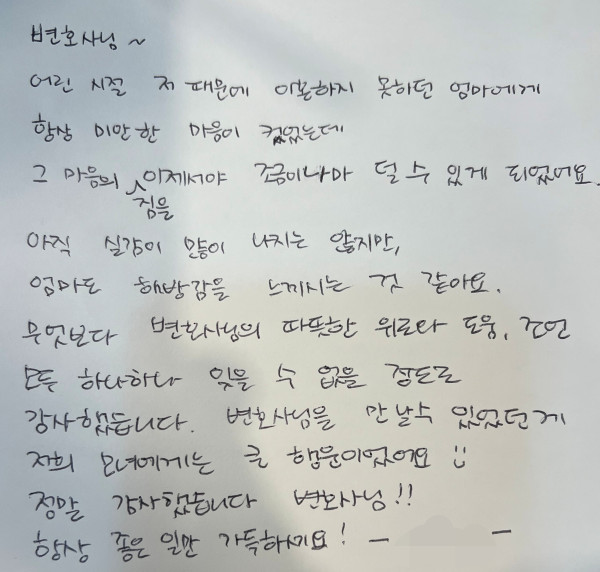 변호사님 ~
어린 시절 저 때문에 이혼하지 못하던 엄마에게
항상 미안한 마음이 컸었는데
그 마음의 짐을 이제서야 조금이나마 덜 수 있게 되었어요.
아직 실감이 많이 나지는 않지만,
엄마도 해방감을 느끼시는 것 같아요.
무엇보다 변호사님의 따뜻한 위로와 도움, 조언
모두 하나하나 잊을 수 없을 정도로
감사했습니다. 변호사님을 만날수 있었던게
저희 모녀에게는 큰 행운이었어요 :)
정말 감사했습니다 변호사님!!
항상 좋은 일만 가득하세요! – –